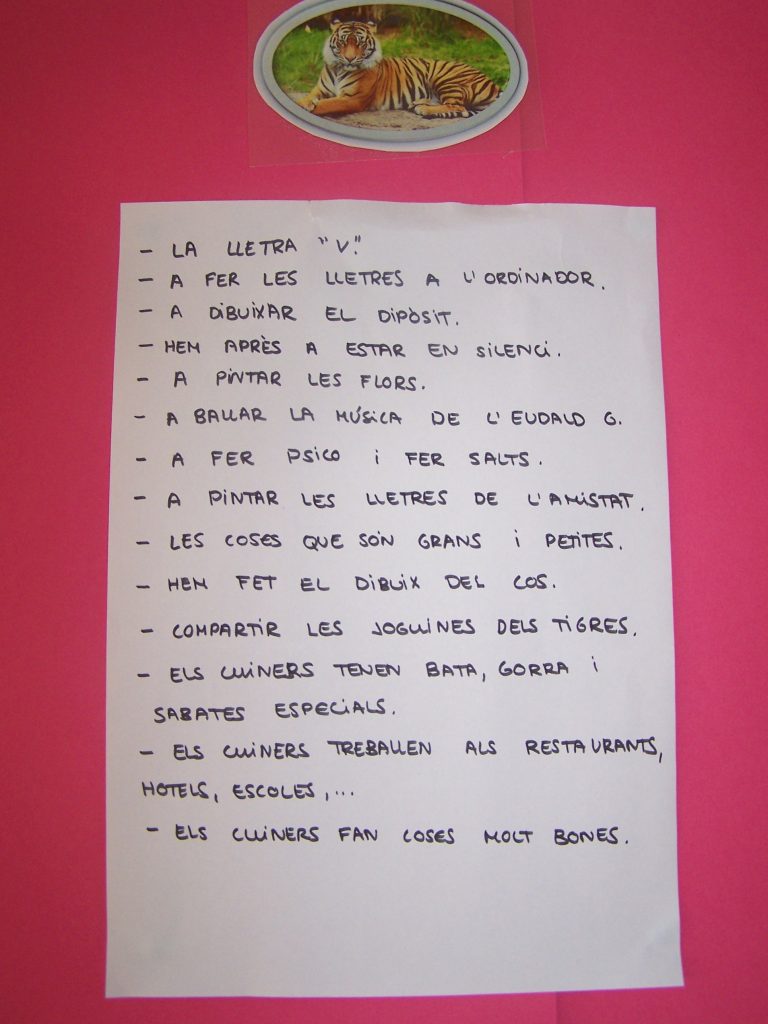 - LA LLETRA "V".
- A FER LES LLETRES A L'ORDINADOR.
- A DIBUIXAR EL DIPÒSIT.
- HEM APRÈS A ESTAR EN SILENCI.
- A PINTAR LES FLORS.
- A BALLAR LA MÚSICA DE L'EUDALD G.
- A FER PSICO I FER SALTS.
- A PINTAR LES LLETRES DE L'AMISTAT.
- LES COSES QUE SÓN GRANS I PETITES.
- HEM FET EL DIBUIX DEL COS.
- COMPARTIR LES JOGUINES DELS TIGRES.
- ELS CUINERS TENEN BATA, GORRA I
SABATES ESPECIALS.
- ELS CUINERS TREBALLEN ALS RESTAURANTS,
HOTELS, ESCOLES,...
- ELS CUINERS FAN COSES MOLT BONES.